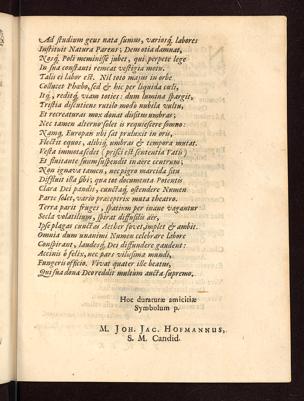 Ad studium geus nata sumus, variosq́; labores
Instituit Natura Parens; Dem otia damnat,
Nosq́; Poli meminisse jubet, qui perpete lege
In sua constanti remeat vestigia motu.
Talis ei labor est. Nil toto majus in orbe
Collucet Phœbo, sed & hic per liquida cœli,
Itq́;, reditq́; viam toties: dum lumina spargit,
Tristia discutiens rutilo modò nubila vultu,
Et recreaturas mox donat diutim umbras;
Nec tamen alterno solet is requiescere somno:
Namq́; Europam ubi fat praluxit in oris,
Flectit equos, aliisq́; umbras & tempora mutat.
Vesta immota sedet (prisci est sententia Fati)
Et fluitante suum suspendit in aëre centrum;
Non ignava tamen, nec pigro marcida situ
Diffluit illa sibi; qua tot documenta Potentis
Clara Dei pandit, cunctaq́; ostendere Numen
Parte solet, vario præceptrix muta theatro.
Terra parit fruges, spatium per inane vagantur
Secla volatilium, spirat diffusilis aër,
Ipse plagas cunctas Aether fovet, implet & ambit.
Omnia dum unanimi Numen celebrare labore
Conspirant, laudesq́; Dei diffundere gaudent:
Accinis ô felix, nec pars vilissima mundi,
Fungeris officio. Vivat quater ille beatus,
Qui sua dona Deo reddit multum aucta supremo.
Hoc duraturæ amicitiæ
Symbolum p.
M. JOH. JAC. HOFMANNUS,
S. M. Candid.